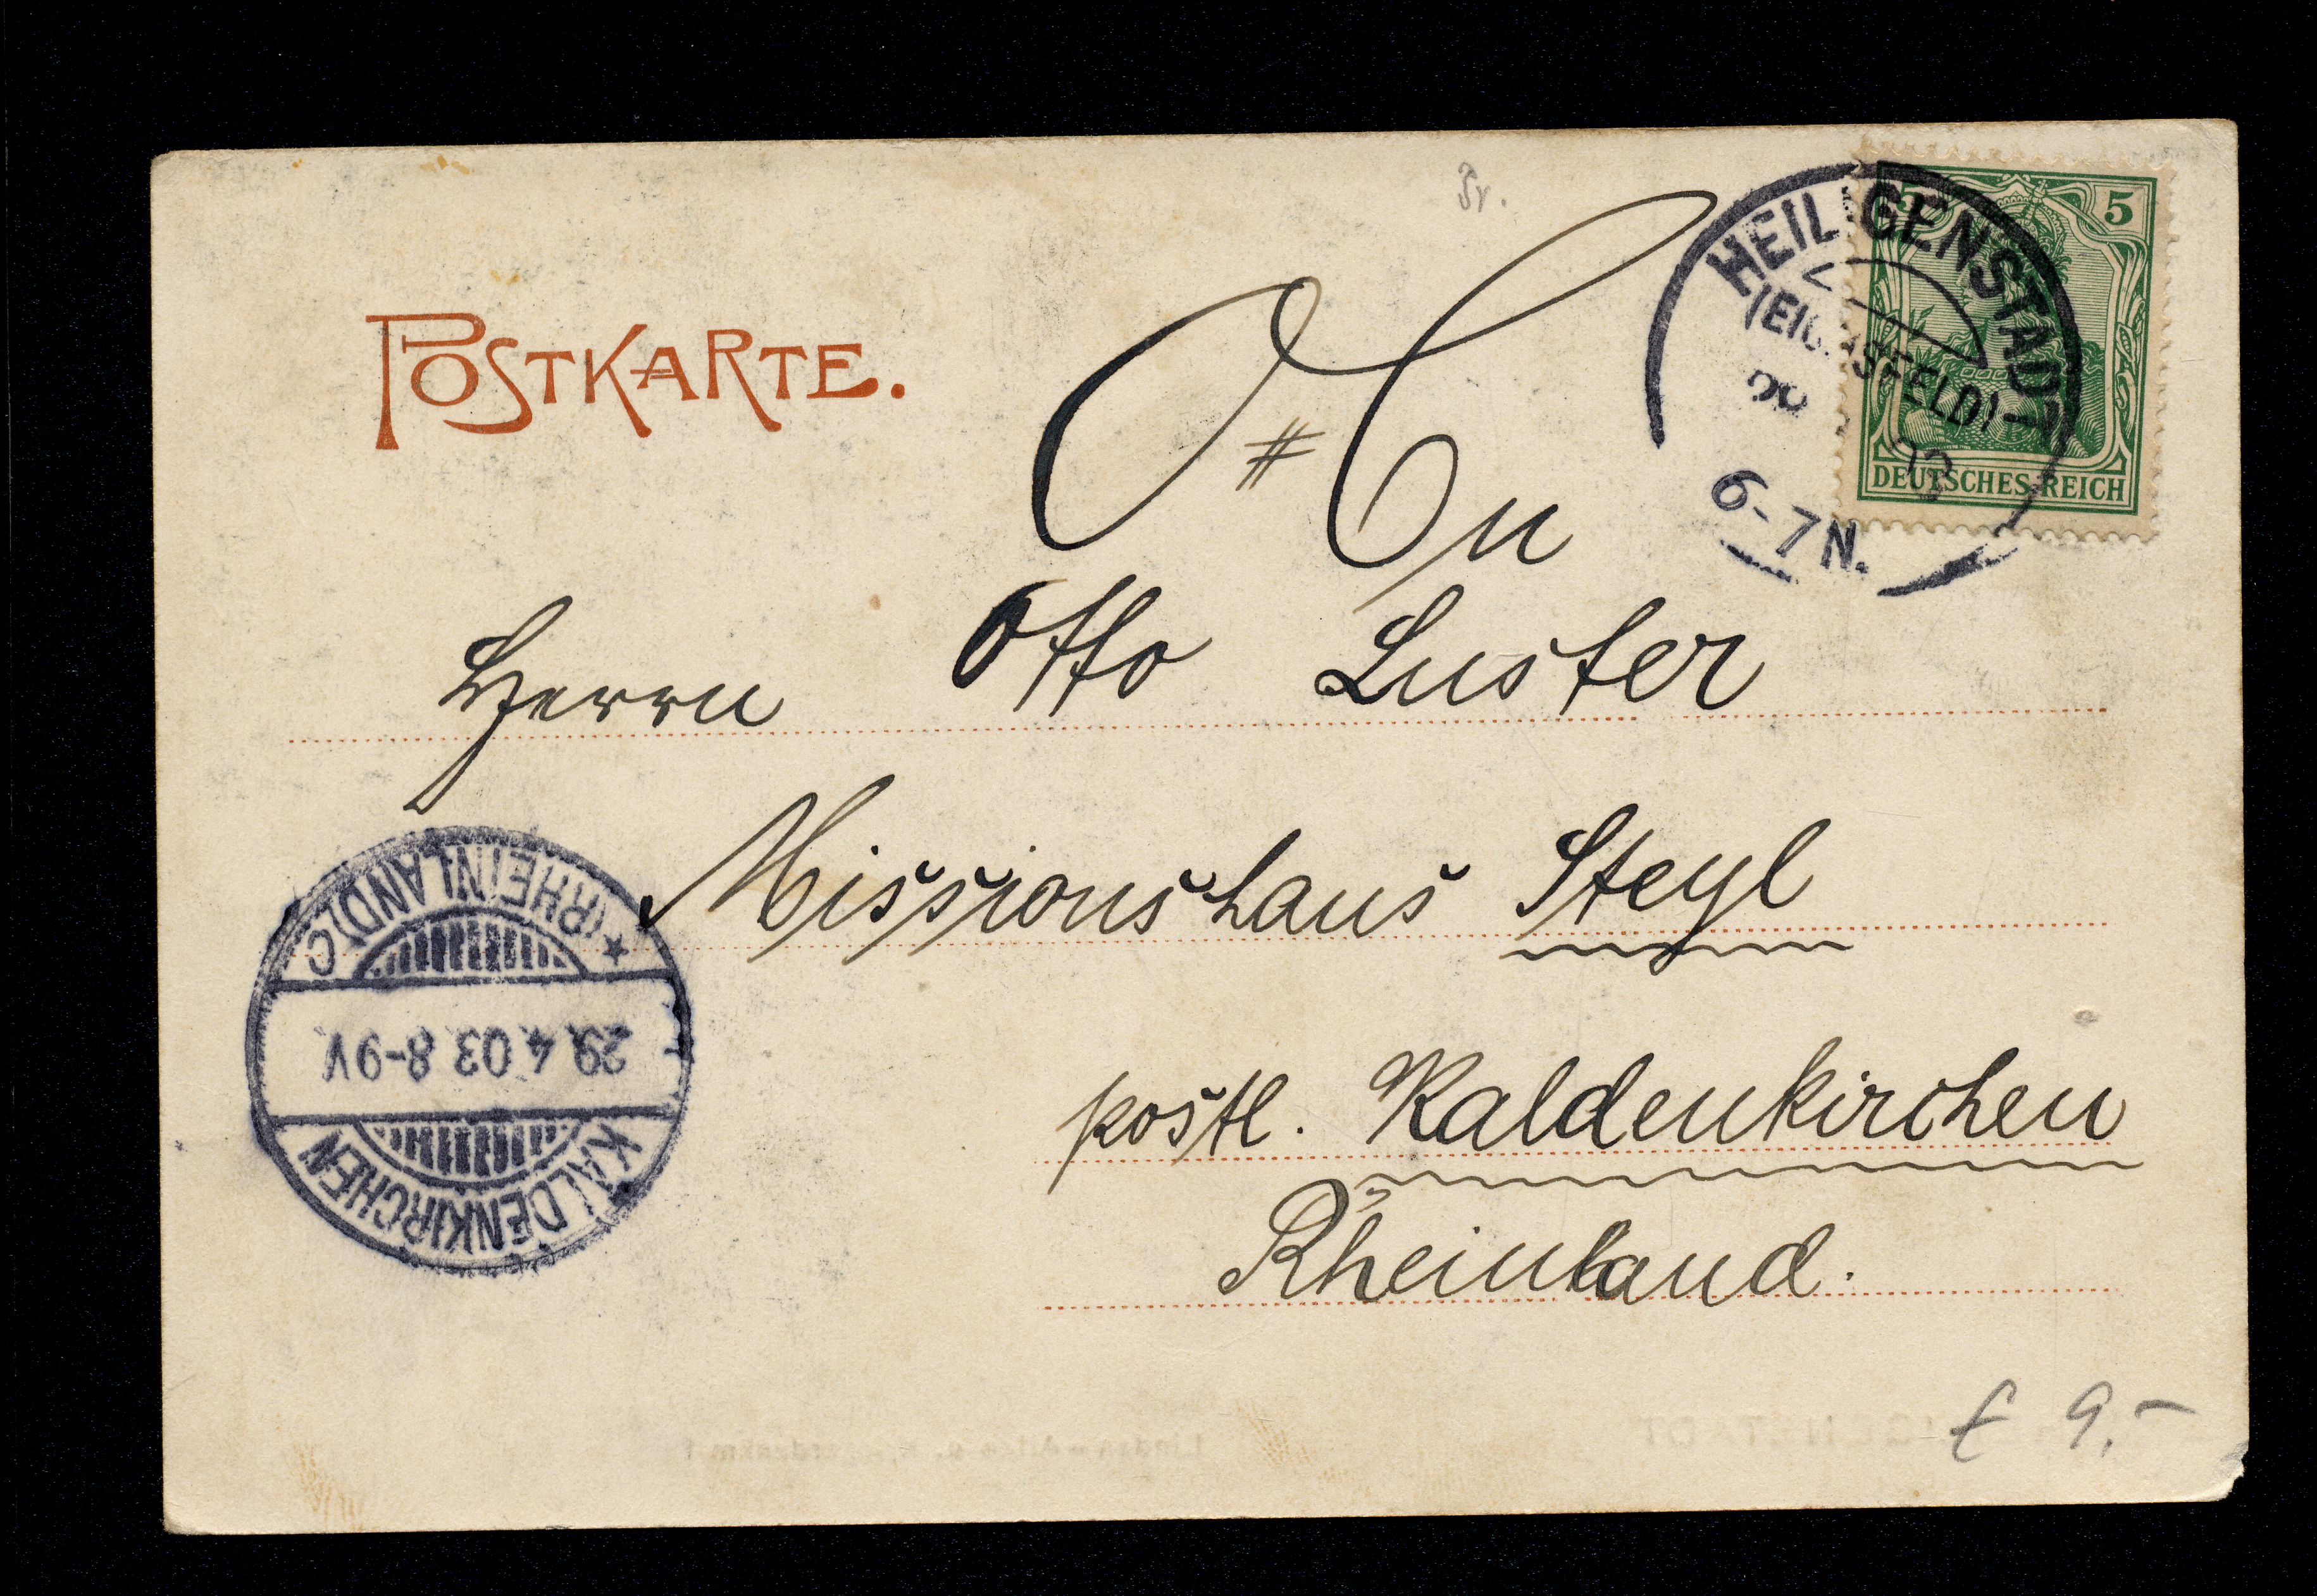 POSTKARTE.
HEILIGENSTADT
(EICHSFELD)
6-7N.
5
5
DEUTSCHES REICH
An
Herrn Otto Luster
Missionshaus Steyl
postl. Kaldenkirchen
Rheinland.
KALDENKIRCHEN
29.4.03 8-9V.
* (RHEINLAND) C
€ 9,-